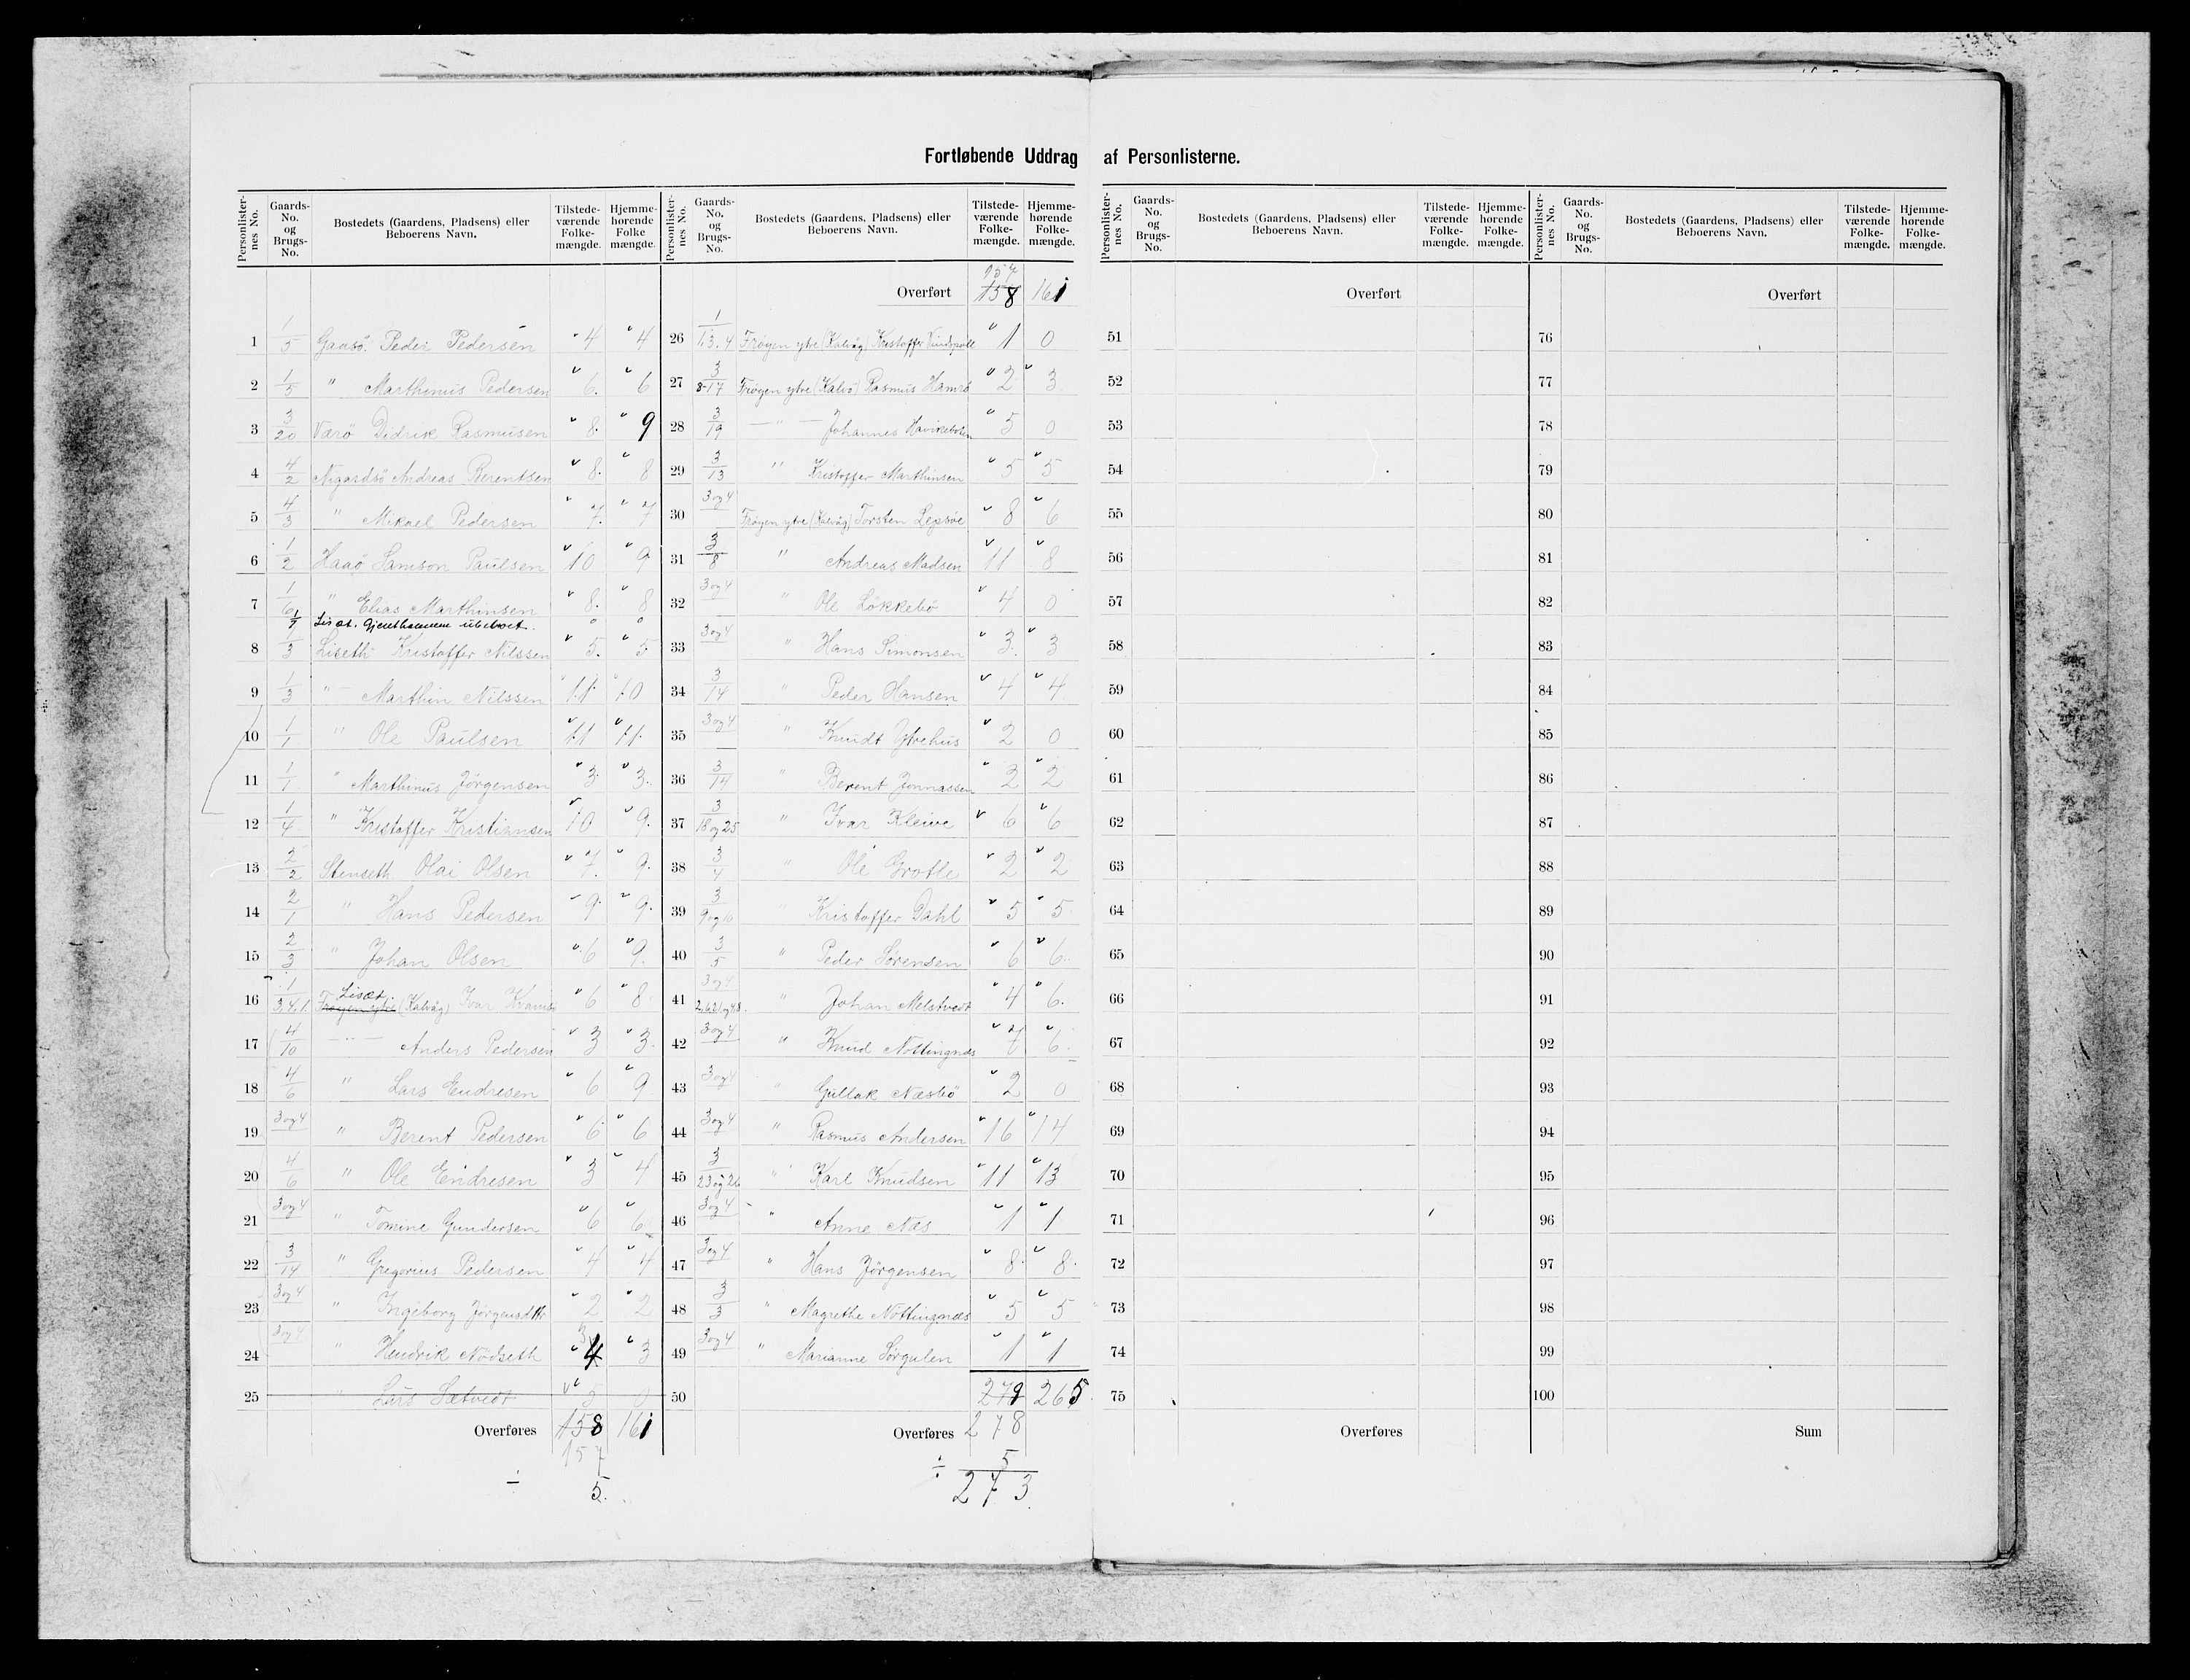 Fortløbende Uddrag af Personlisterne.
Personlisternes No. Gaards-No. og Brugs-No. Bostedets (Gaardens, Pladsens) eller Beboerens Navn. Tilstedeværende Folkemængde. Hjemmehørende Folkemængde.
1 1/5 Gaasö. Peder Pedersen 4 4
2 1/5 " Marthinus Pedersen 6. 6
3 3/20 Værö Didrik Rasmusen 8. 9
4 4/2 Nigardsö Andreas Berentsen 8. 8
5 4/3 " Mikael Pedersen 7. 7
6 1/2 Haaö Samson Paulsen 10 9
7 1/6 " Elias Marthinsen 8. 8
1/7 Lisæt. ubeboet. 0 0
8 1/3 Liseth Kristoffer Nilssen 5. 5
9 1/3 " Marthin Nilssen 11 10
10 1/1 " Ole Paulsen 11 11
11 1/1 " Marthinus Jörgensen 3 3
12 1/4 " Kristoffer Kristiansen 10 9
13 2/2 Stenseth Olai Olsen 7 9
14 2/1 " Hans Pedersen 9 9
15 2/3 " Johan Olsen 6 9
16 1/3,4,1 Lisæt. Frøyen ytre (Kalvåg) Ivar 6 8
17 4/10 — " — Anders Pedersen 3 3
18 4/6 " Lars Endresen 6 9
19 3og4 " Berent Pedersen 6 6
20 4/6 " Ole Endresen 3 4
21 3og4 " Tomine Gundersen 6 6
22 3/14 " Gregorius Pedersen 4 4
23 3og4 " Ingeborg Jørgensdttr 2 2
24 3og4 " Hendrik Nödseth 3 4 3
25 " Lars Sætvedt 5 0
Overføres 158 161
157
÷ 5.
Personlisternes No. Gaards-No. og Brugs-No. Bostedets (Gaardens, Pladsens) eller Beboerens Navn. Tilstedeværende Folkemængde. Hjemmehørende Folkemængde.
157
Overført 158 161
26 1/1.3.4 Frøyen ytre (Kalvåg) Kristoffer 1 0
27 3/8-17 Frøyen ytre (Kalvö) Rasmus Hamre 2 3
28 3/19 — " — Johannes 5 0
29 3/13 " Kristoffer Marthinsen 5 5
30 3og4 Frøyen ytre (Kalvåg) Torsten Lepsöe 8 6
31 3/8 " Andreas Madsen 11 8
32 3og4 " Ole Lökkebö 4 0
33 3og4 " Hans Simonsen 3. 3
34 3/14 " Peder Hansen 4 4
35 3og4 " Knudt Ytrehus 2 0
36 3/14 " Berent Jonnassen 2 2
37 3/18 og 25 " Ivar Kleive 6 6
38 3/4 " Ole Grotle 2 2
39 3/9og16 " Kristoffer Dahl 5 5
40 3/5 " Peder Sörensen 6 6
41 3og4 " Johan Melstvedt 4 6.
42 3og4 " Knud Nottingnæs 7 6
43 3og4 " Gullak Næsbö 2 0
44 3og4 " Rasmus Andersen 16 14
45 3/23og26 " Karl Knudsen 11 13
46 3og4 " Anne Næs 1 1
47 3og4 " Hans Jörgensen 8 8
48 3/3 " Magrethe Nottingnæs 5 5
49 3og4 " Marianne Sörgulen 1 1
50 279 265
Overføres 278
÷ 5
273
Personlisternes No. Gaards-No. og Brugs-No. Bostedets (Gaardens, Pladsens) eller Beboerens Navn. Tilstedeværende Folkemængde. Hjemmehørende Folkemængde.
Overført
51
52
53
54
55
56
57
58
59
60
61
62
63
64
65
66
67
68
69
70
71
72
73
74
75
Overføres
Personlisternes No. Gaards-No. og Brugs-No. Bostedets (Gaardens, Pladsens) eller Beboerens Navn. Tilstedeværende Folkemængde. Hjemmehørende Folkemængde.
Overført
76
77
78
79
80
81
82
83
84
85
86
87
88
89
90
91
92
93
94
95
96
97
98
99
100
Sum